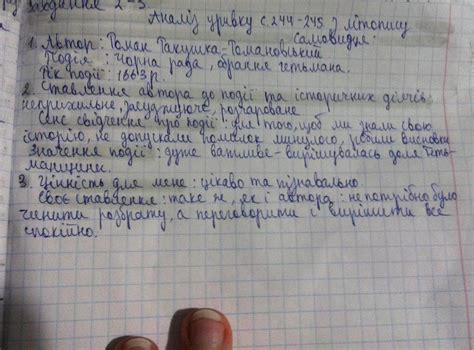 Завдання 2-3
Аналіз уривку с.244-245 з літопису
Самовидця:
1. Автор: Роман Ракушка-Романовський
Подія: Чорна рада, обрання гетьмана.
Рік події: 1663 р.
2. Ставлення автора до події та історичних діячів:
неприхильне, засуджуюче, розчароване.
Сенс свідчення про події: для того, щоб ми знали свою
історію, не допускали помилок минулого, робили висновки
Значення події: дуже важливе - вирішувалась доля Геть-
манщини.
3. Цінність для мене: цікаво та пізнавально.
Своє ставлення: таке ж, як і автора: не потрібно було
чинити розбрату, а переговорити і вирішити все
спокійно.